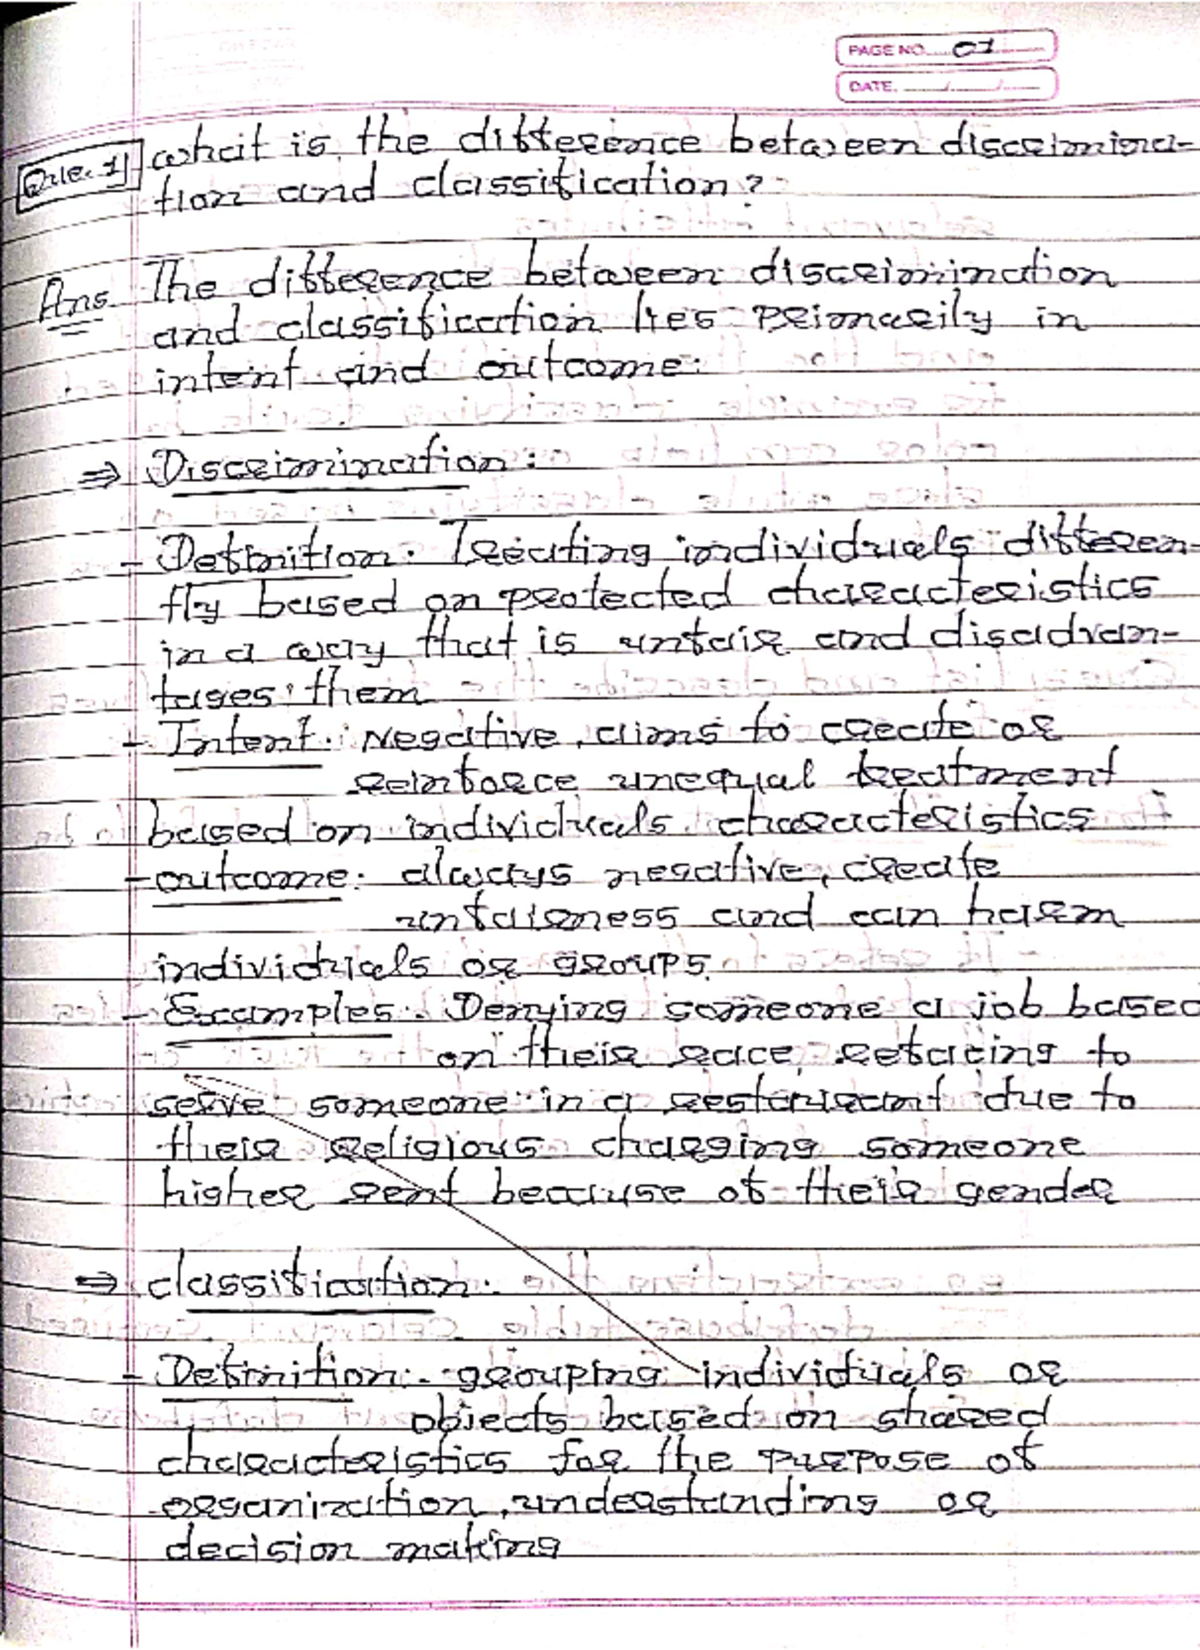 PAGE NO. 01
DATE.
Que. 1 what is the difference between discrimina-
tion and classification?
Ans. The difference between discrimination
and classification lies primarily in
intent and outcome:
⇒ Discrimination:
- Definition: Treating individuals differen-
tly based on protected characteristics
in a way that is unfair and disadvan-
tages them
- Intent: Negative, aims to create or
reinforce unequal treatment
based on individuals characteristics
- outcome: always negative, create
unfairness and can harm
individuals or groups.
- Examples: Denying someone a job based
on their race, refucing to
serve someone in a restaurant due to
their religious charging someone
higher rent because of their gender
⇒ classification:
- Definition: grouping individuals or
objects based on shared
characteristics for the purpose of
organization, understanding or
decision making